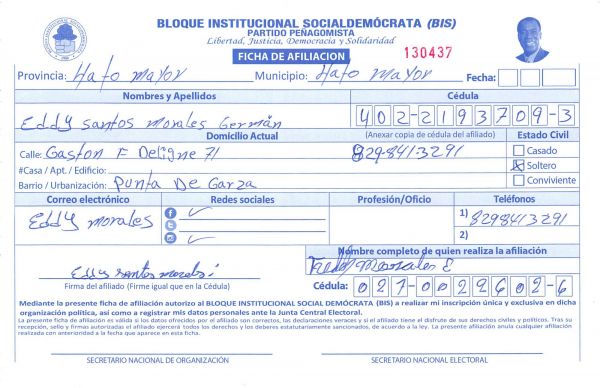 BLOQUE INSTITUCIONAL SOCIALDEMÓCRATA (BIS)
PARTIDO PEÑAGOMISTA
Libertad, Justicia, Democracia y Solidaridad
FICHA DE AFILIACION
130437
Provincia: Hato Mayor Municipio: Hato Mayor Fecha:
Nombres y Apellidos Cédula
Eddy Santos Morales Germán 402-2193709-3
Domicilio Actual (Anexar copia de cédula del afiliado) Estado Civil
Calle: Gaston F Deligne 71 8298413291 Casado
#Casa / Apt. / Edificio: Soltero
Barrio / Urbanización: Punta De Garza Conviviente
Correo electrónico Redes sociales Profesión/Oficio Teléfonos
Eddy Morales 1) 8298413291
2)
Nombre completo de quien realiza la afiliación
Eddy Santos Morales Freddy Morales E
Firma del afiliado (Firme igual que en la Cédula) Cédula: 027-0029602-6
Mediante la presente ficha de afiliación autorizo al BLOQUE INSTITUCIONAL SOCIAL DEMÓCRATA (BIS) a realizar mi inscripción única y exclusiva en dicha
organización política, así como a registrar mis datos personales ante la Junta Central Electoral.
La presente ficha de afiliación es válida si los datos ofrecidos por el afiliado son correctos, las declaraciones veraces y si el afiliado tiene el disfrute de sus derechos civiles y políticos. Tras su
recepción, sello y firmas autorizadas el afiliado ejercerá todos los derechos y los deberes estatutariamente sancionados, de acuerdo a la ley. La presente afiliación anula cualquier afiliación
realizada con anterioridad a la fecha que aparece en esta ficha.
SECRETARIO NACIONAL DE ORGANIZACIÓN SECRETARIO NACIONAL ELECTORAL